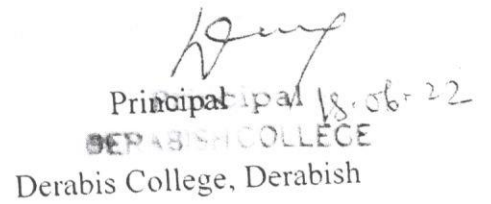 Principal 18.06.22
DERABISH COLLEGE
Derabis College, Derabish